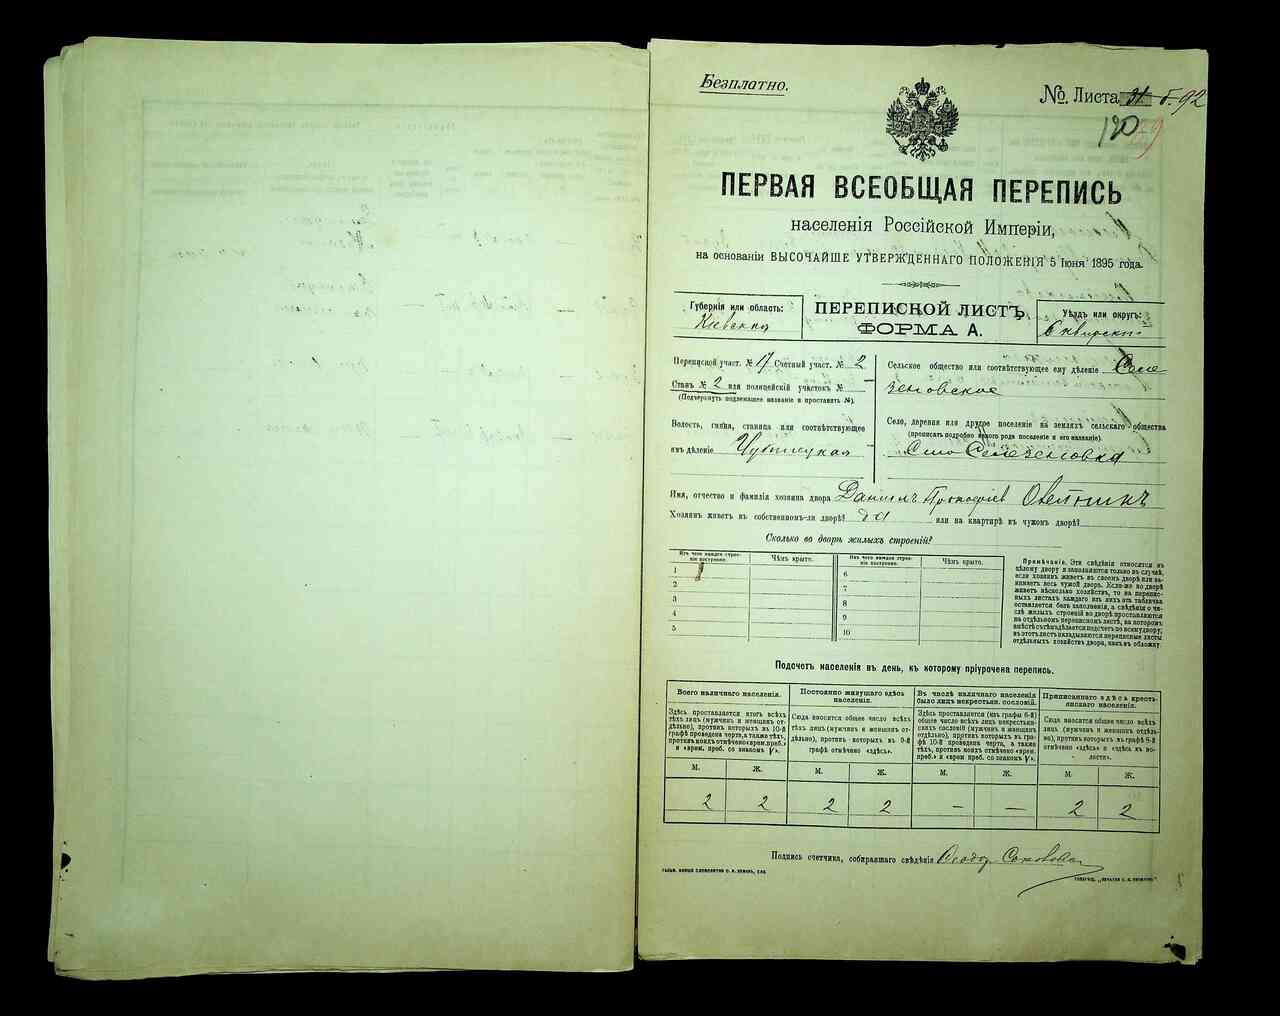 Безплатно.
№ Листа 92
120
ПЕРВАЯ ВСЕОБЩАЯ ПЕРЕПИСЬ
населенія Россійской Имперіи,
на основаніи ВЫСОЧАЙШЕ УТВЕРЖДЕННАГО ПОЛОЖЕНІЯ 5 Іюня 1895 года.
Губернія или область:
Кіевская
ПЕРЕПИСНОЙ ЛИСТЪ
ФОРМА А.
Уѣздъ или округъ:
Сквирскій
Переписной участ. № 17 Счетный участ. № 2
Станъ № 2 или полицейскій участокъ №
(Подчеркнуть подлежащее названіе и проставить №).
Волость, гмина, станица или соотвѣтствующее
имъ дѣленіе
Сельское общество или соотвѣтствующее ему дѣленіе Селе
зеновское
Село, деревня или другое поселеніе на земляхъ сельскаго общества
(прописать подробно какого рода поселеніе и его названіе).
Село Селезеновка
Имя, отчество и фамилія хозяина двора Даніилъ Прокофіев
Хозяинъ живетъ въ собственномъ-ли дворѣ? да или на квартирѣ въ чужомъ дворѣ?
Сколько во дворѣ жилыхъ строеній?
Изъ чего каждое строеніе построено.
Чѣмъ крыто.
Изъ чего каждое строеніе построено.
Чѣмъ крыто.
1
2
3
4
5
6
7
8
9
10
Примѣчаніе. Эти свѣдѣнія относятся къ
цѣлому двору и заполняются только въ случаѣ,
если хозяинъ живетъ въ своемъ дворѣ или за-
нимаетъ весь чужой дворъ. Если-же во дворѣ
живетъ нѣсколько хозяйствъ, то на перепис-
ныхъ листахъ каждаго изъ нихъ эта табличка
оставляется безъ заполненія, а свѣдѣнія о чи-
слѣ жилыхъ строеній во дворѣ проставляются
на отдѣльномъ переписномъ листѣ, на которомъ
вмѣстѣ съ тѣмъ дѣлается подсчетъ по всему двору;
въ этотъ листъ вкладываются переписные листы
отдѣльныхъ хозяйствъ двора, какъ въ обложку.
Подсчетъ населенія въ день, къ которому пріурочена перепись.
Всего наличнаго населенія.
Здѣсь проставляется итогъ всѣхъ
тѣхъ лицъ (мужчинъ и женщинъ от-
дѣльно), противъ которыхъ въ 10-й
графѣ проведена черта, а также тѣхъ,
противъ коихъ отмѣчено «врем. преб.»
и «врем. преб. со знакомъ V».
Постоянно живущаго здѣсь
населенія.
Сюда вносится общее число всѣхъ
тѣхъ лицъ (мужчинъ и женщинъ от-
дѣльно), противъ которыхъ въ 9-й
графѣ отмѣчено «здѣсь».
Въ числѣ наличнаго населенія
было лицъ некрестьян. сословій.
Здѣсь проставляется (изъ графы 6-й)
общее число всѣхъ лицъ некрестьян-
скихъ сословій (мужчинъ и женщинъ
отдѣльно), противъ которыхъ въ гра-
фѣ 10-й проведена черта, а также
тѣхъ, противъ коихъ отмѣчено «врем.
преб.» и «врем. преб. со знакомъ V».
Приписаннаго здѣсь кресть-
янскаго населенія.
Сюда вносится общее число всѣхъ
лицъ (мужчинъ и женщинъ отдѣль-
но), противъ которыхъ въ графѣ 8-й
отмѣчено «здѣсь» и «здѣсь въ во-
лости».
М. Ж. М. Ж. М. Ж. М. Ж.
2 2 2 2 — — 2 2
Подпись счетчика, собиравшаго свѣдѣнія